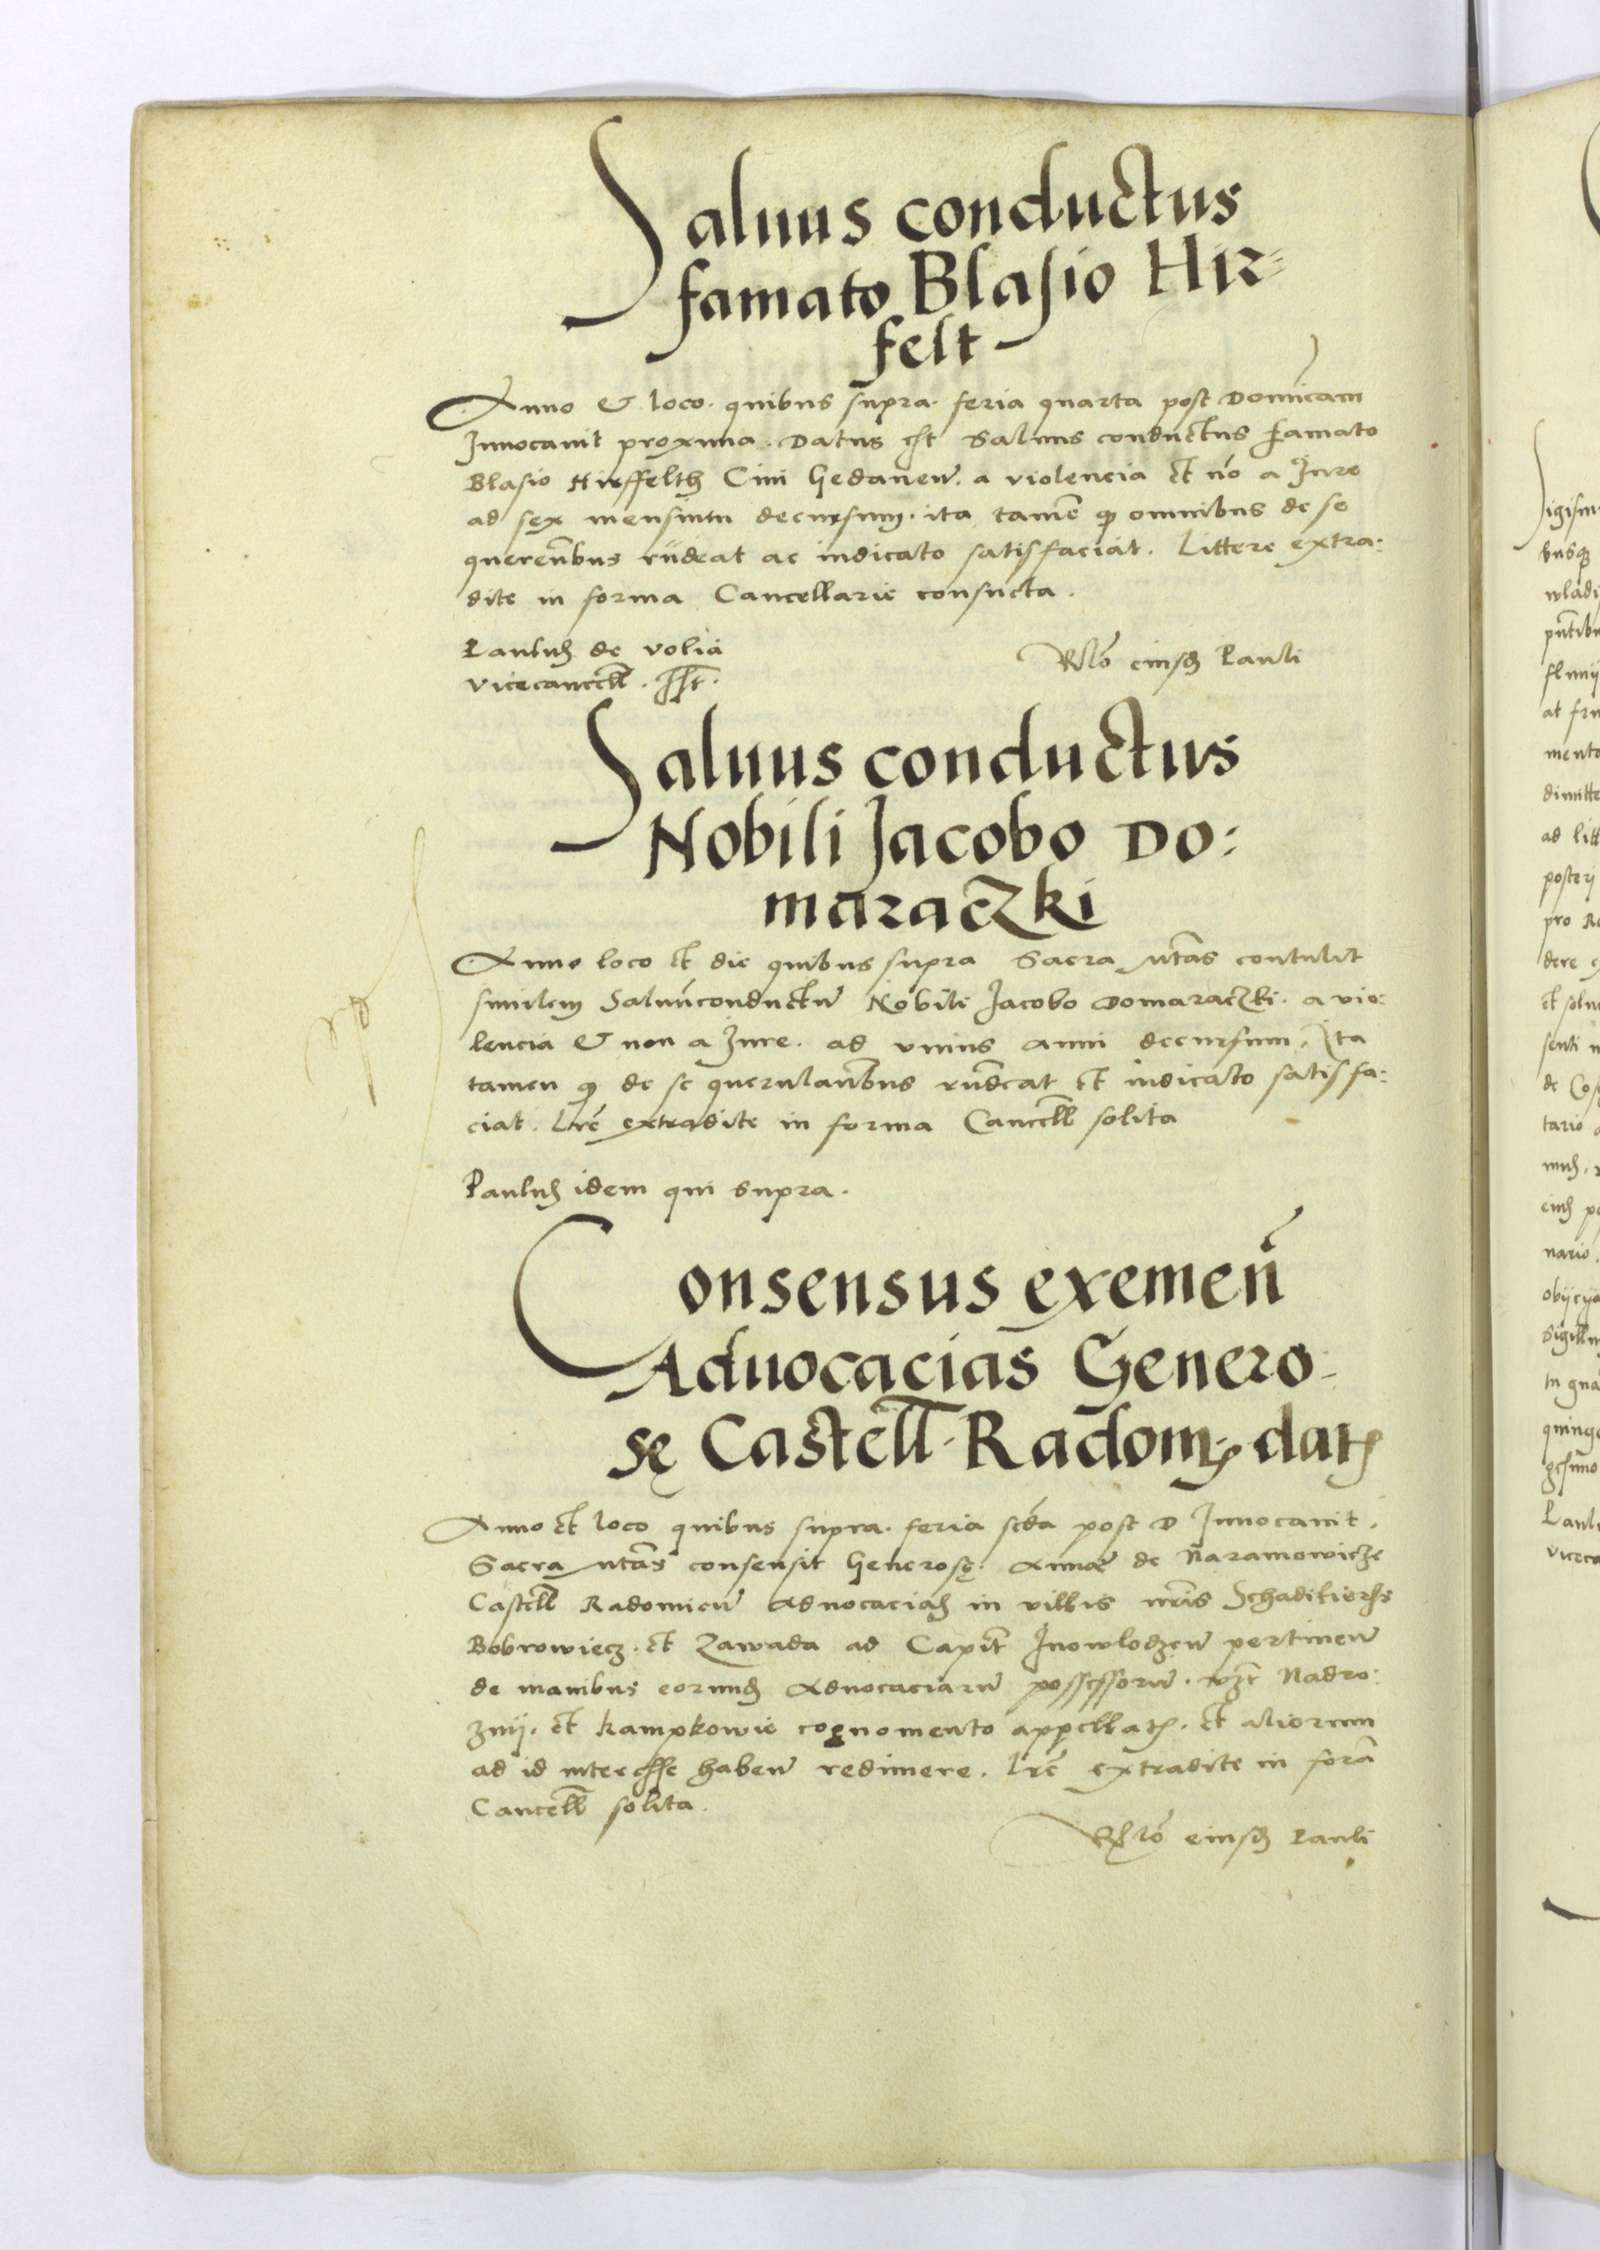 Saluus conductus
famato Blasio Hir=
felt
Anno & loco. quibus supra. feria quarta post Dominicam
Inuocauit proxima. Datus est Saluus conductus famato
Blasio Hirffelth Ciui Gedanen̄. a violencia et nō a Iure
ad sex mensium decursum. ita tamē q omnibus de se
querentibus rn̄deat ac iudicato satisfaciat. Littere extra=
dite in forma Cancellarie consueta.
Paulus de volia
vicecancell̄. sst.
Rlō eiusdē Pauli
Saluus conductus
Nobili Jacobo Do:
maraczki
Anno loco et die quibus supra Sacra Mtas contulit
similem Saluūconductū Nobili Jacobo Domaraczki. a vio=
lencia & non a Iure. ad vnius anni decursum. Ita
tamen q de se querulantibus rn̄deat et iudicato satisfa=
ciat. Lrē extradite in forma Cancell̄ solita
Paulus idem qui supra.
Consensus exemen̄
Aduocacias Genero=
sę Castell̄. Radom. dat
Anno et loco quibus supra. feria scd̄a post D Inuocauit.
Sacra Mtas consensit Generosę. Annae de Naramowicze
Castell̄ Radomien̄ Aduocacias in villis nr̄is
Bobrowiecz. et Zawada ad Capit Inowlodzen̄ pertinen̄
de manibus eorund Aduocaciarū possessorū. vzt Nadro=
znij. et Kampkowie cognomento appellat. et aliorum
ad id interesse haben̄ redimere. Lrē extradite in forā
Cancell̄ solita.
Rlō eiusdē Pauli